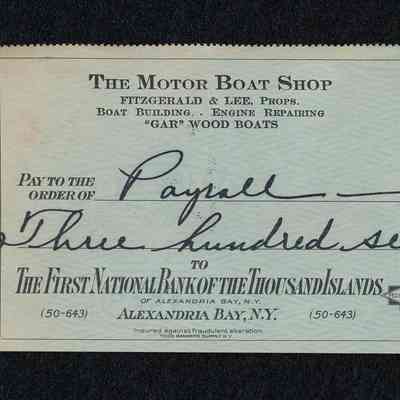 THE MOTOR BOAT SHOP
FITZGERALD & LEE, PROPS.
BOAT BUILDING. . ENGINE REPAIRING
"GAR" WOOD BOATS
PAY TO THE
ORDER OF Payroll
Three hundred se
TO
THE FIRST NATIONAL BANK OF THE THOUSAND ISLANDS
OF ALEXANDRIA BAY, N.Y.
(50-643) ALEXANDRIA BAY, N.Y. (50-643)
Insured against fraudulent alteration.